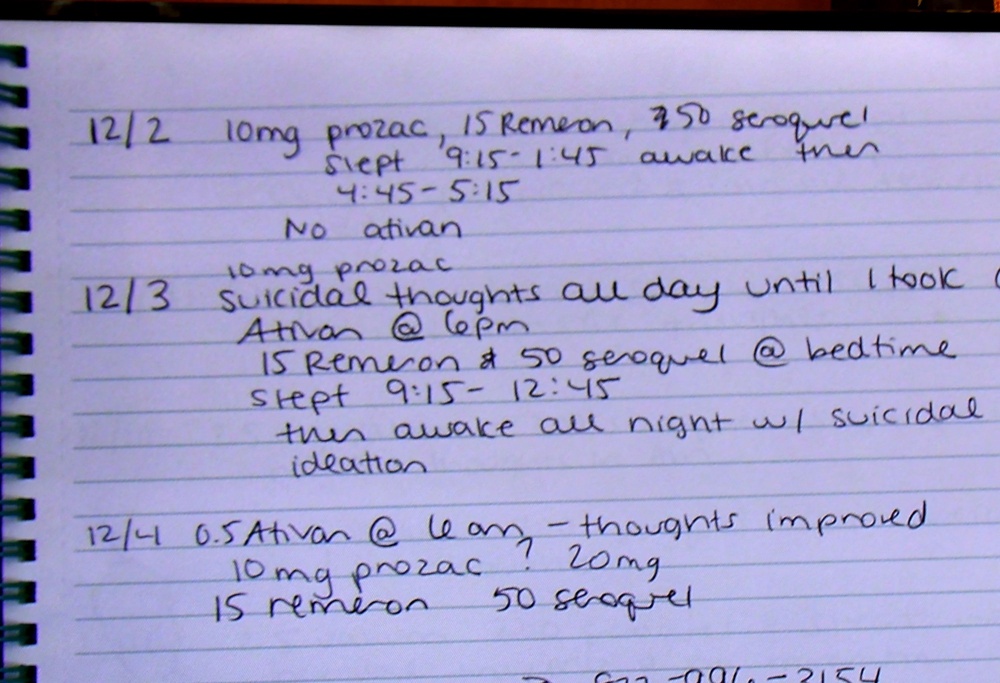 12/2 10mg prozac, 15 Remeron, 50 seroquel
slept 9:15-1:45 awake then
4:45-5:15
No ativan
10mg prozac
12/3 suicidal thoughts all day until I took
Ativan @ 6pm
15 Remeron & 50 seroquel @ bedtime
slept 9:15- 12:45
then awake all night w/ suicidal
ideation
12/4 0.5 Ativan @ 6am - thoughts improved
10mg prozac ? 20mg
15 remeron 50 seroquel